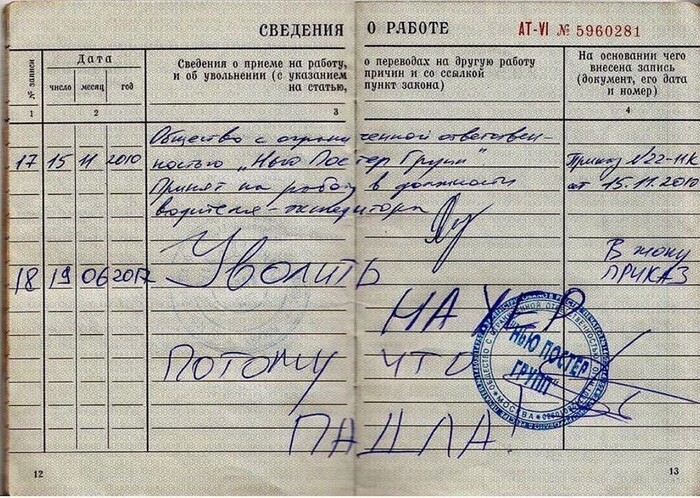 СВЕДЕНИЯ О РАБОТЕ
АТ-VI № 5960281
№ записи
Дата
число месяц год
Сведения о приеме на работу, о переводах на другую работу
и об увольнении (с указанием причин и со ссылкой
на статью, пункт закона)
На основании чего
внесена запись
(документ, его дата
и номер)
1 2 3 4
Общество с ограниченной ответствен-
17 15 11 2010 ностью „Нью Постер Групп" Приказ N22-НК
Принят на работу в должности от 15.11.2010
водителя-экспедитора
18 19 06 2017 Уволить В жопу
ПРИКАЗ
НАХЕР
ПОТОМУ ЧТО
ПАДЛА!
"НЬЮ ПОСТЕР
ГРУПП"
МОСКВА
12
13